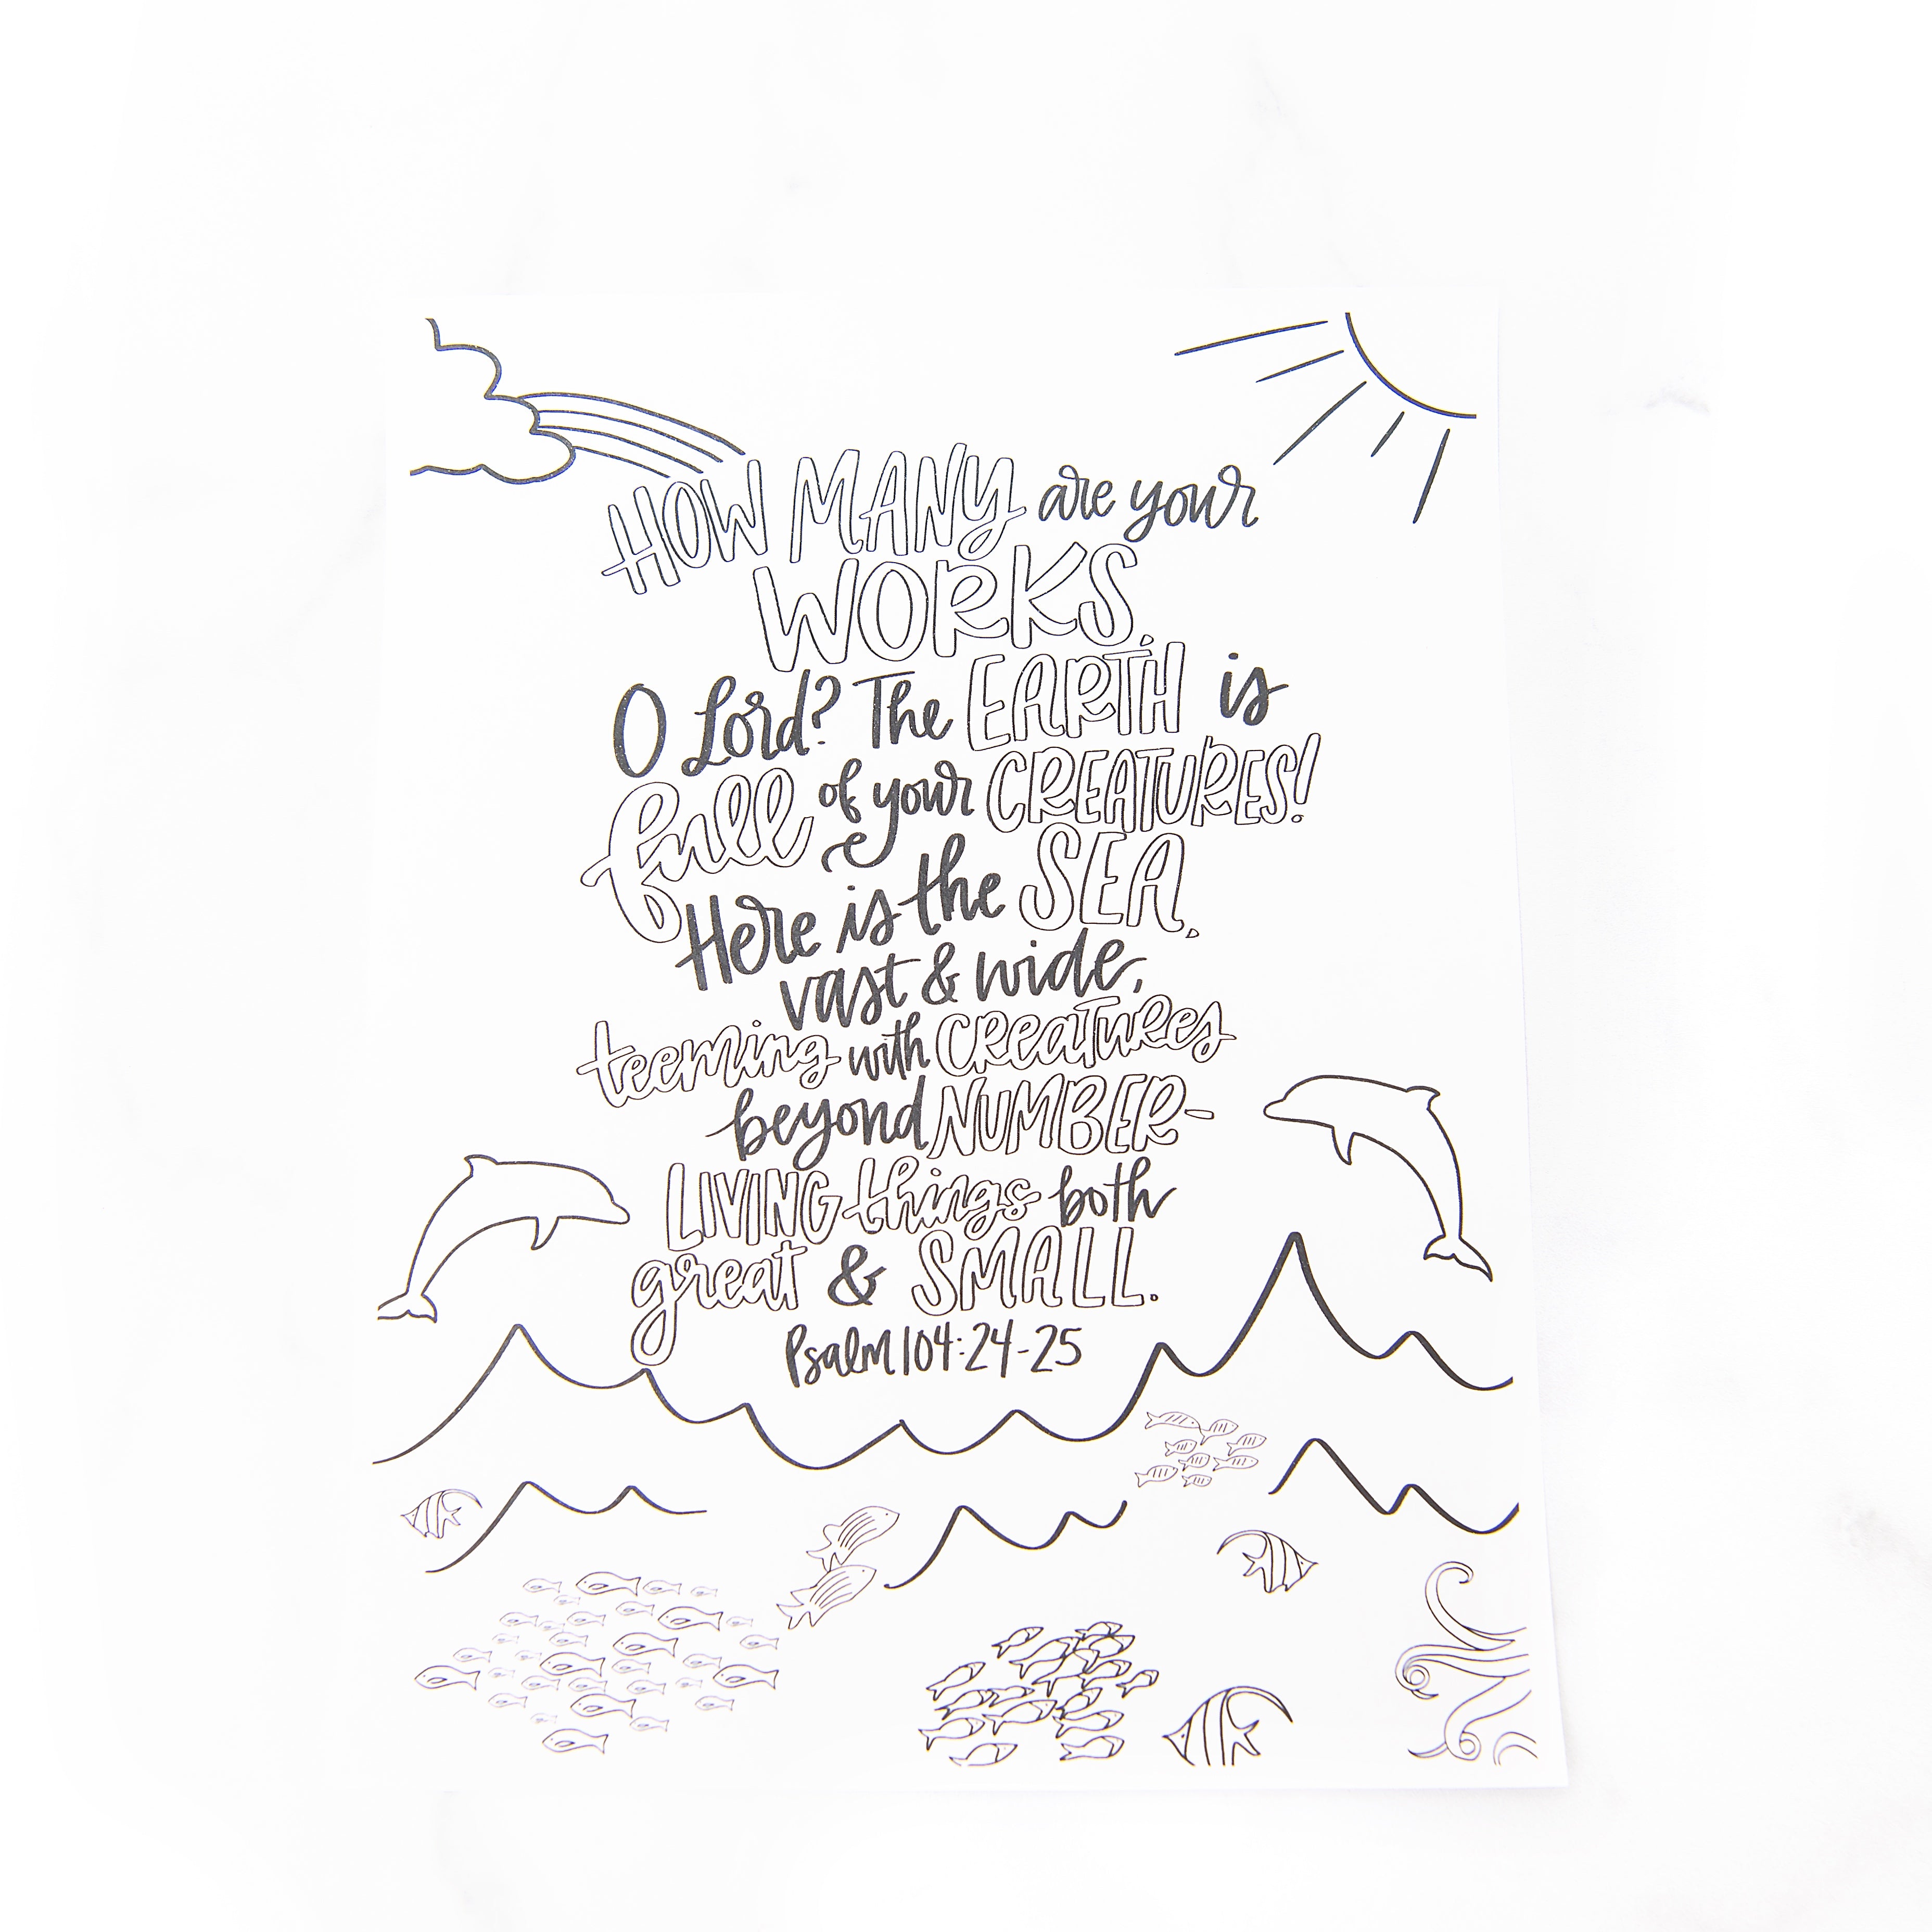 HOW MANY are your
WORKS,
O Lord? The EARTH is
full of your CREATURES!
Here is the SEA,
vast & wide,
teeming with CREATURES
beyond NUMBER-
LIVING things both
great & SMALL.
Psalm 104:24-25